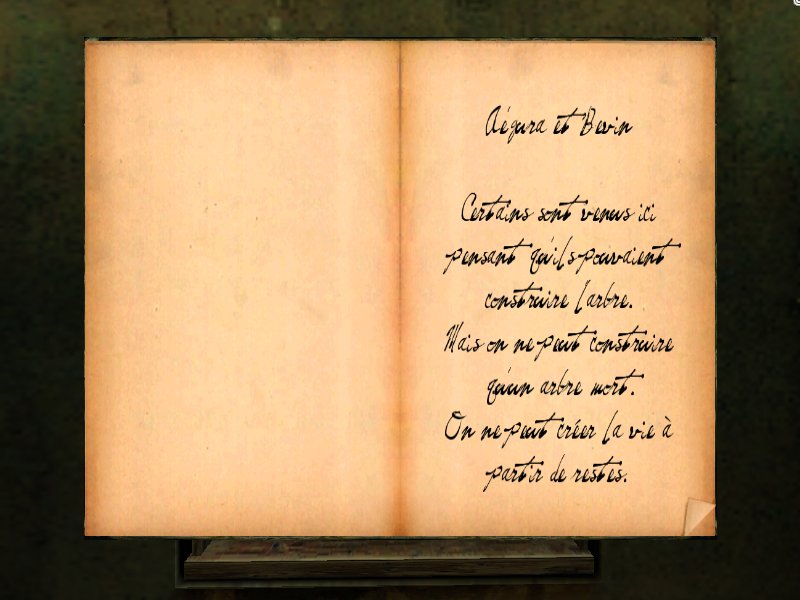 Aégura et Bevin
Certains sont venus ici
pensant qu'ils pouvaient
construire l'arbre.
Mais on ne peut construire
qu'un arbre mort.
On ne peut créer la vie à
partir de restes.